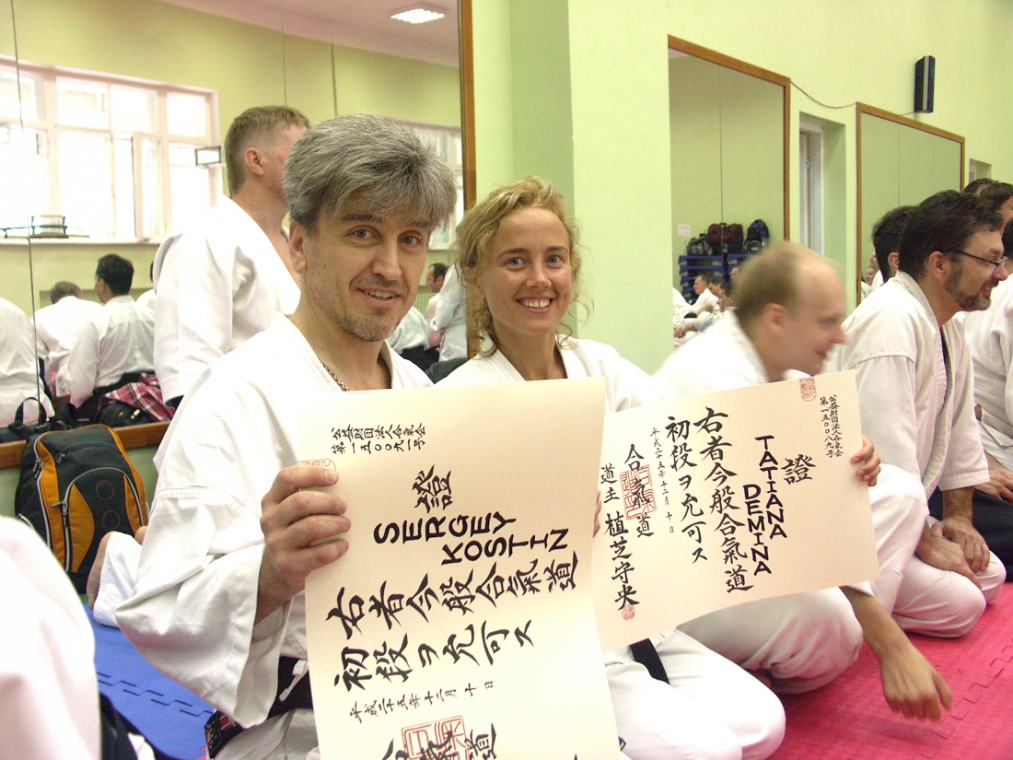 公益財団法人合氣会
證
SERGEY
KOSTIN
右者今般合氣道
初段ヲ允可ス
平成二五年十二月十日
合氣道
公益財団法人合氣会
第一五〇〇八九号
證
TATIANA
DEMINA
右者今般合氣道
初段ヲ允可ス
平成二五年十二月十日
合氣道
道主 植芝守央